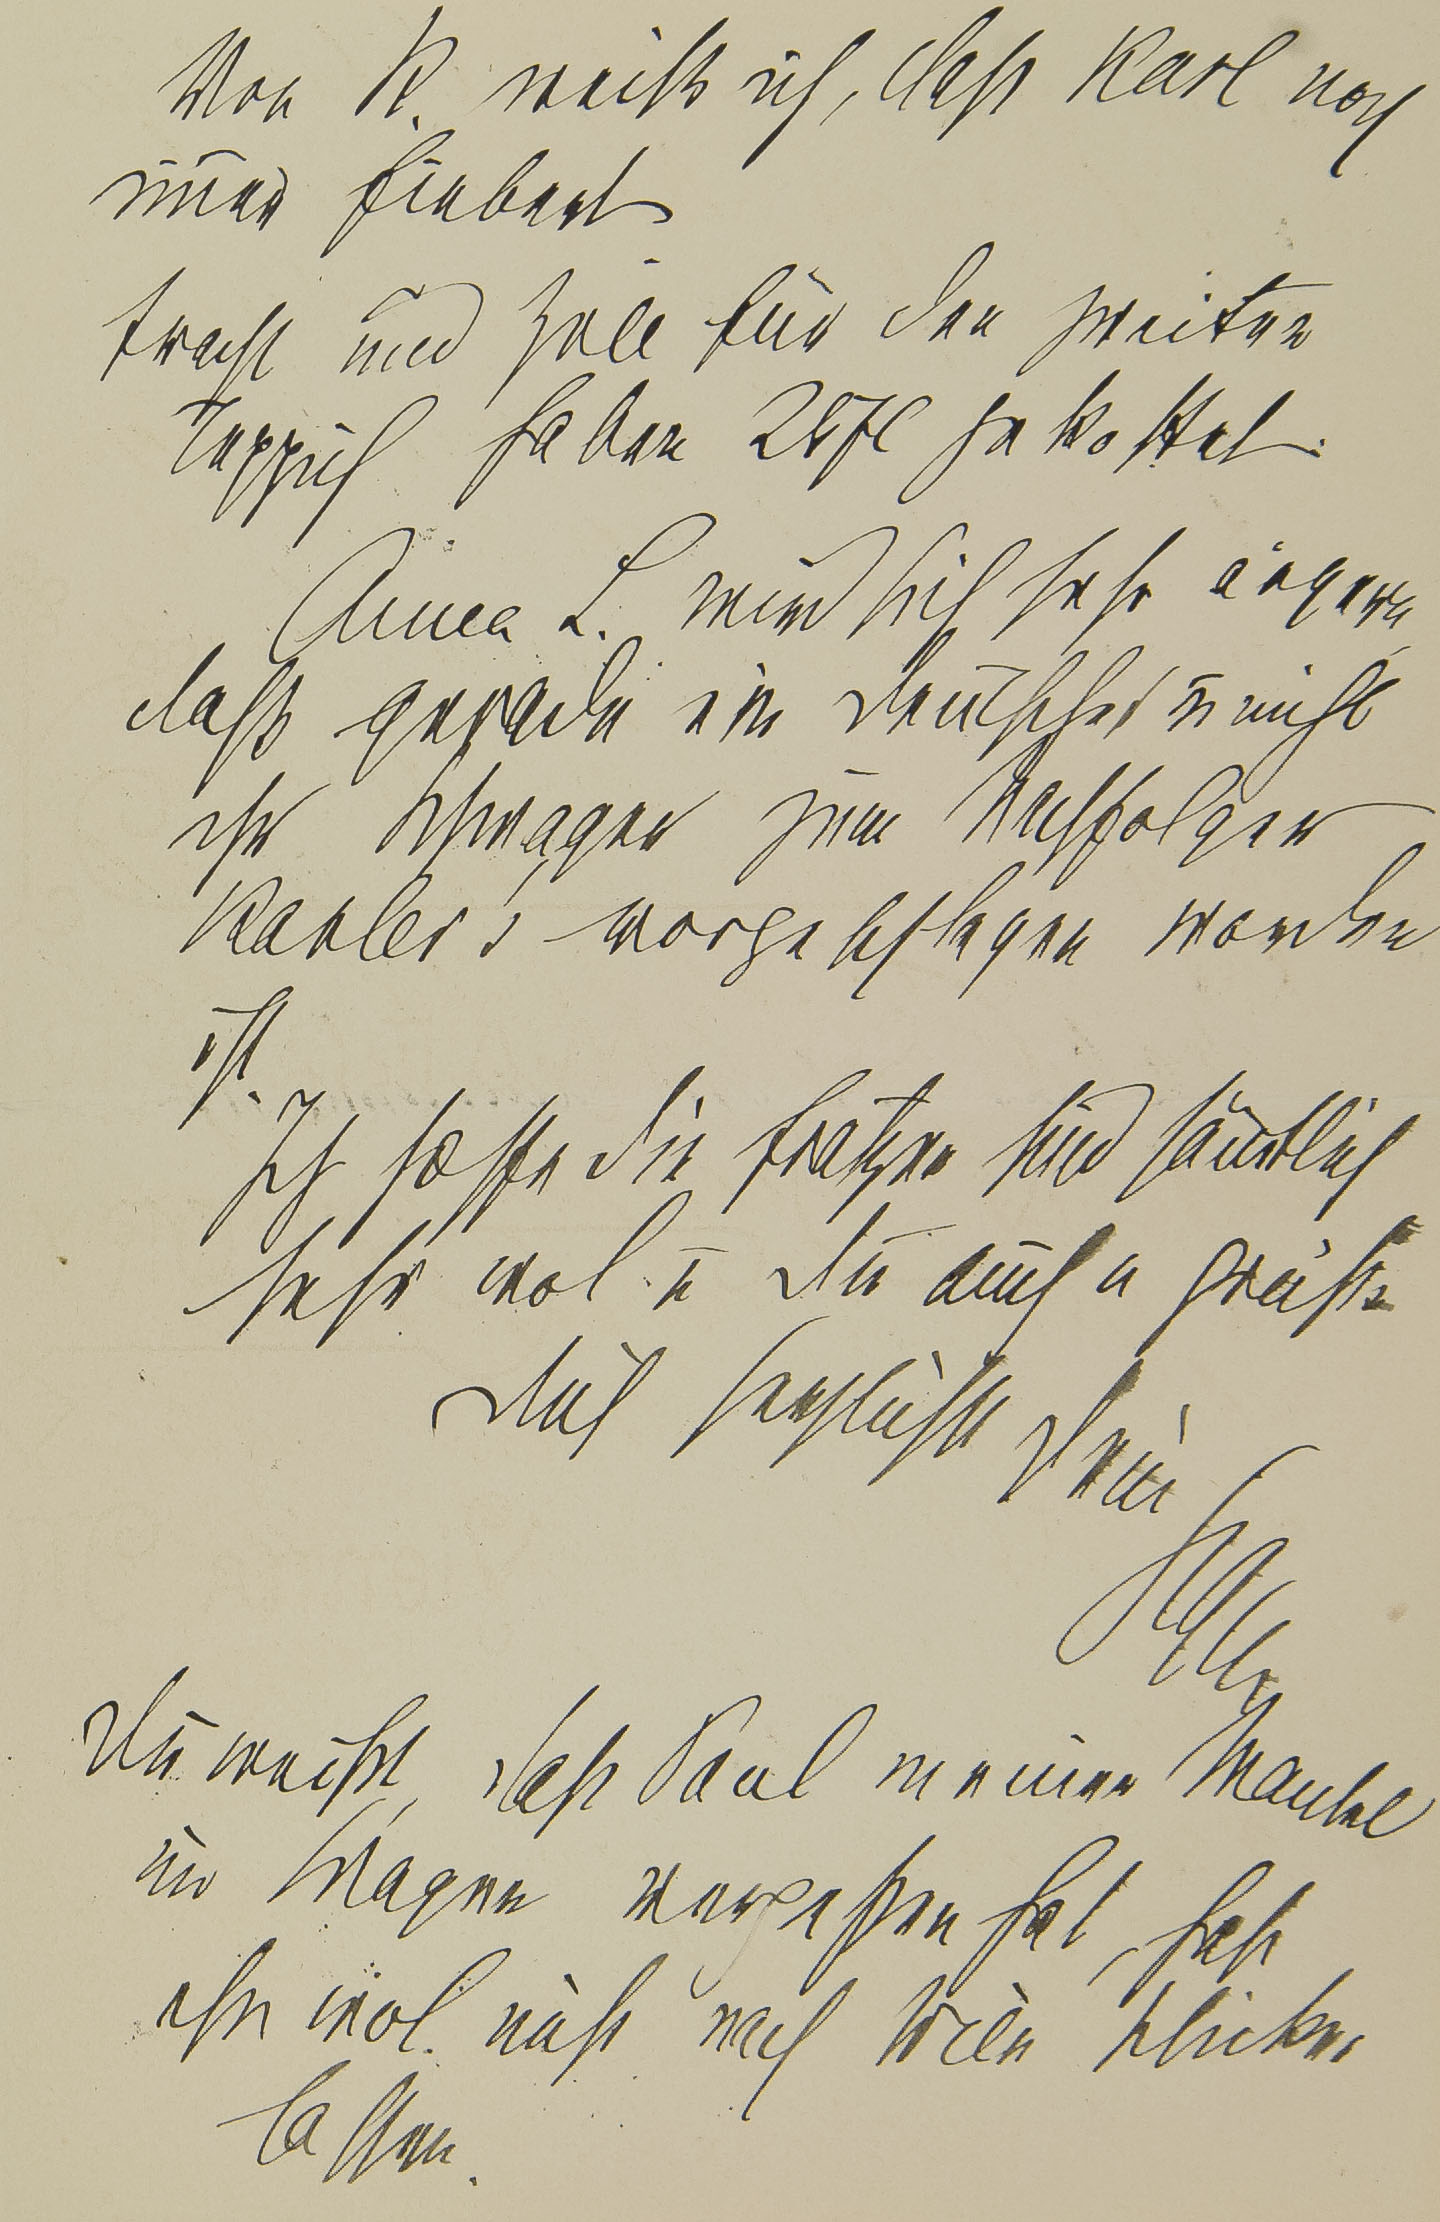 Von K. weiß ich, daß Karl noch
im̄er fiebert
Fracht und Zoll für den zweiten
Teppich haben 28 fl gekostet.
Anna L. wird sich sehr ärgern,
daß gerade ein Deutscher u nicht
ihr Schwager zum Nachfolger
Kahler's vorgeschlagen worden
ist.
Ich hoffe die Fratzen sind sämtlich
sehr wol u Du auch u grüße
Dich herzlichst Dein
Du weißt, daß Paul meinen Mantel
im Wagen vergessen hat, hast
ihn wol nicht nach Wien schicken
lassen.